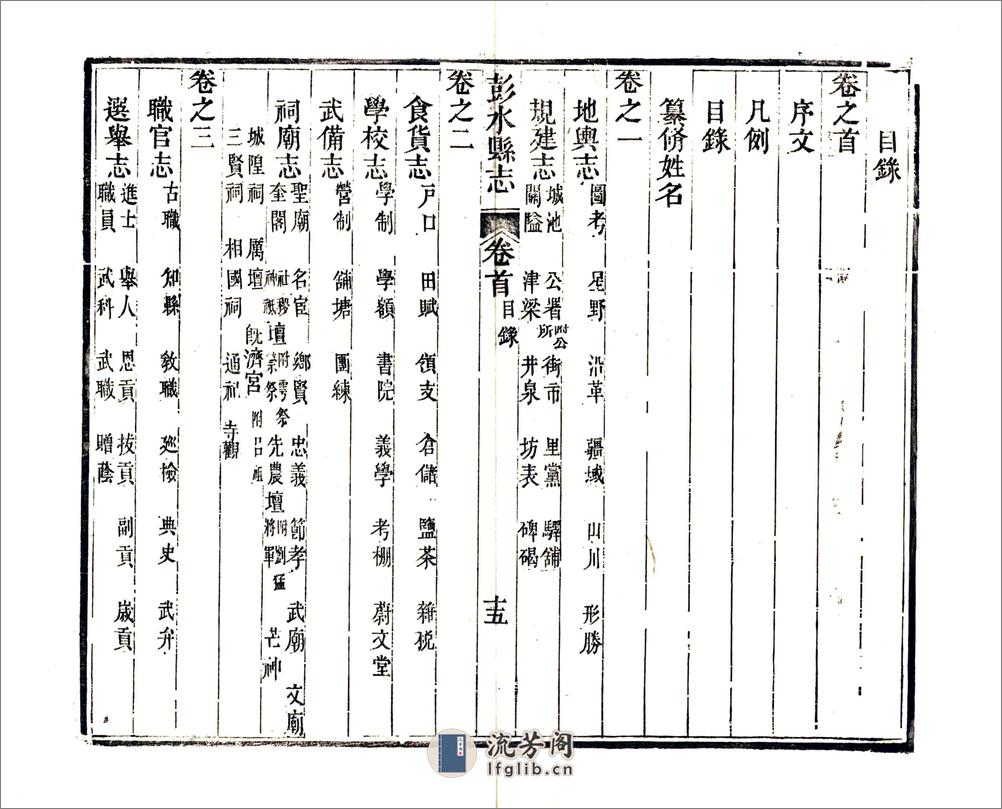 目錄
卷之首
序文
凡例
目錄
纂脩姓名
卷之一
地輿志 圖考 星野 沿革 疆域 山川 形勝
規建志 城池 公署附公所 街市 里黨 驛舖
關隘 津梁 井泉 坊表 碑碣
彭水縣志 卷首 目錄 十五
卷之二
食貨志 戸口 田賦 領支 倉儲 鹽茶 雜税
學校志 學制 學額 書院 義學 考棚 蔚文堂
武備志 營制 舖塘 團練
祠廟志 聖廟 名宦 鄉賢 忠義 節孝 武廟 文廟
奎閣 社稷神祇壇附雩祭禜祭 先農壇 附劉猛將軍 芒神
城隍祠 厲壇 既濟宮 附呂祖
三賢祠 相國祠 通祀 寺觀
卷之三
職官志 古職 知縣 教職 廵檢 典史 武弁
選舉志 進士 舉人 恩貢 拔貢 副貢 歲貢
職員 武科 武職 贈蔭
流芳阁
lfglib.cn